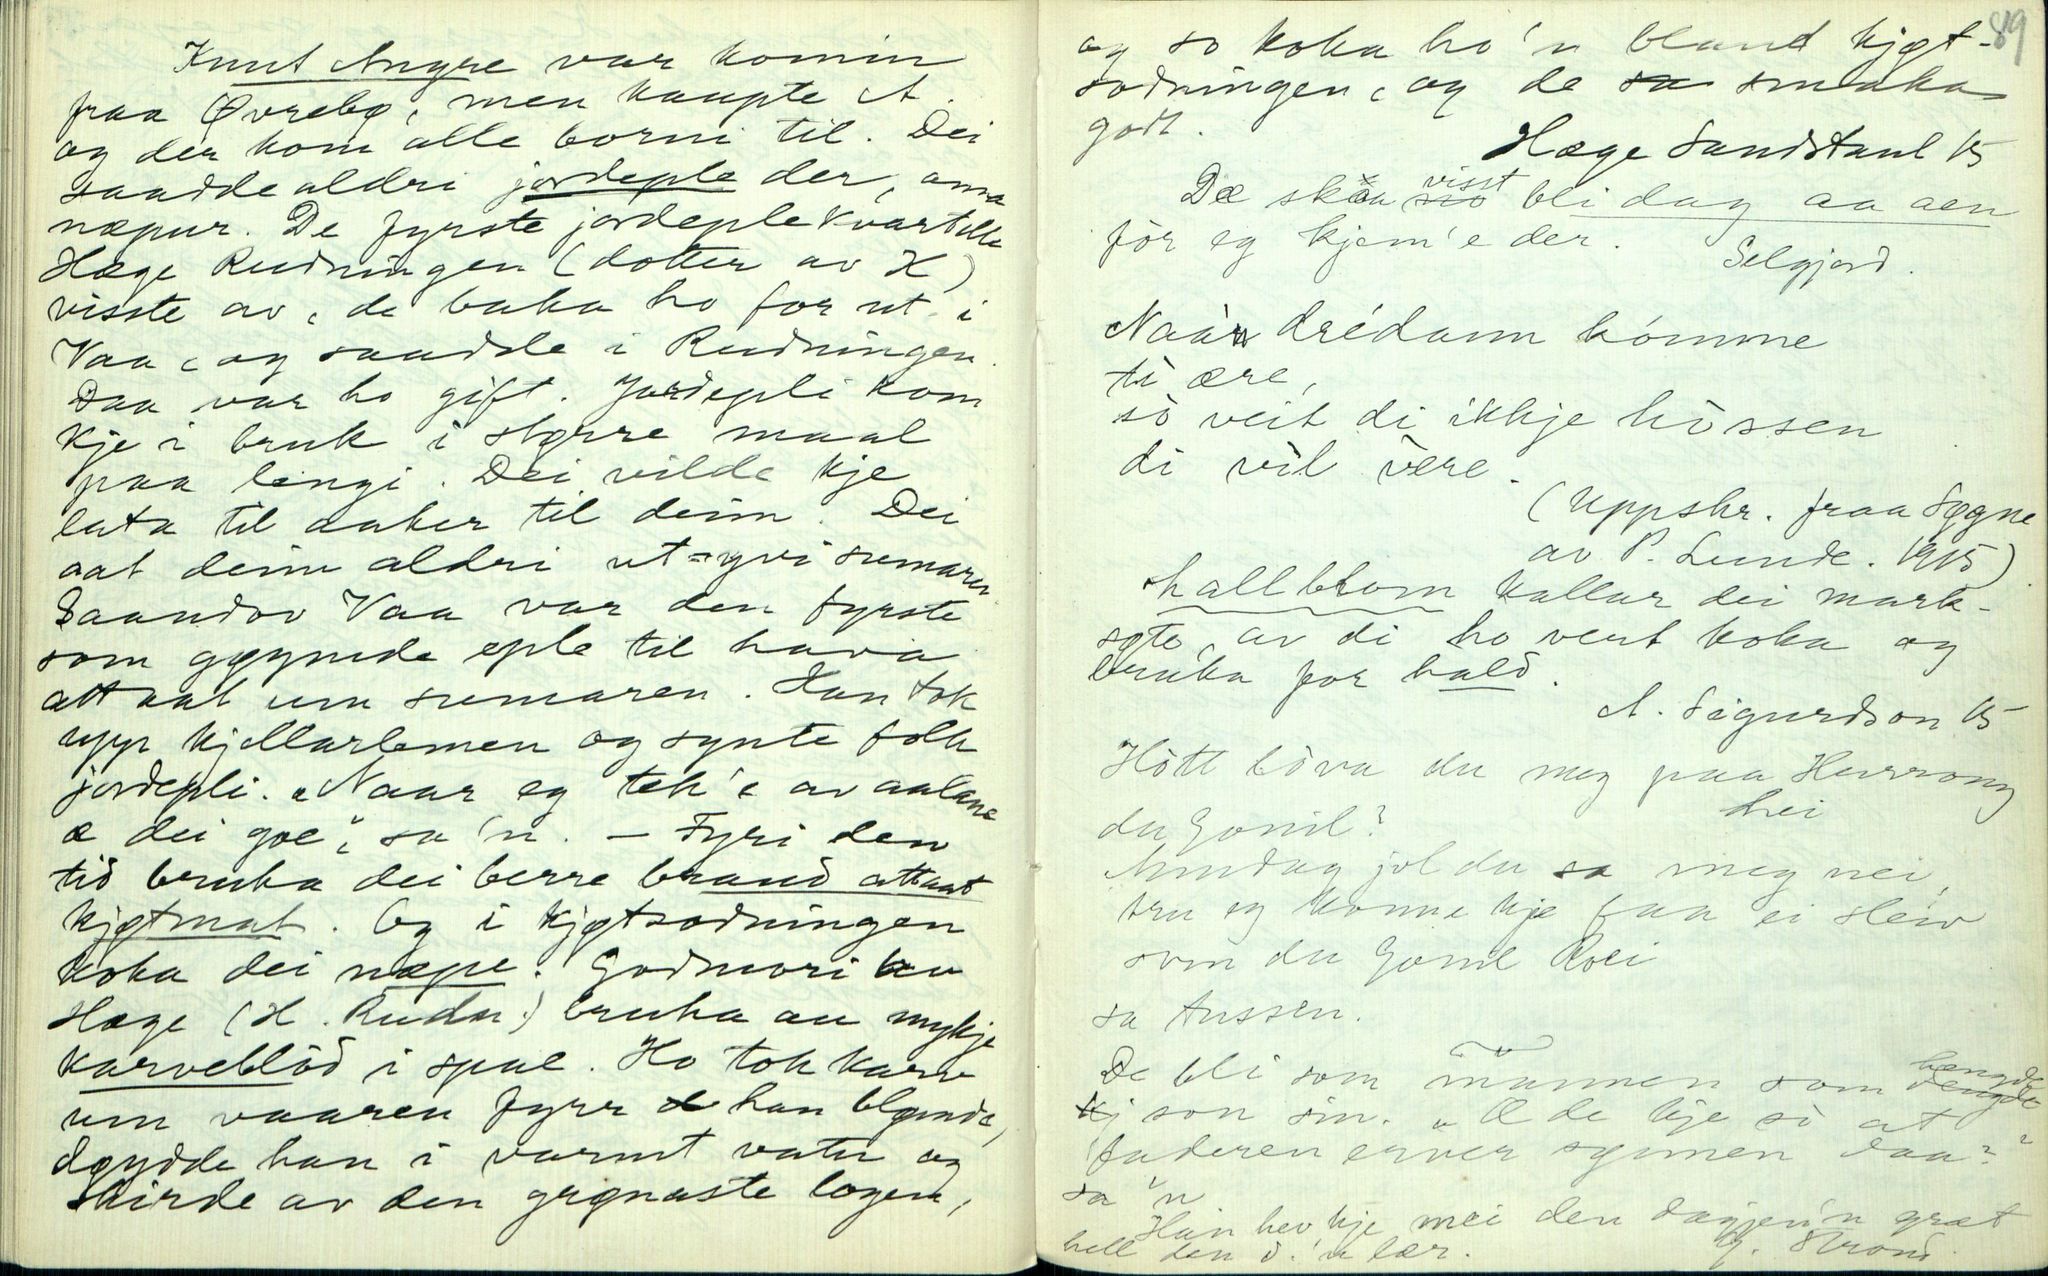 Knut Angre var komin
fraa Øvrebø, men kaupte A.
og der kom alle borni til. Dei
saadde aldri jordeple der, anna
næpur. De fyrste jordeple
Hæge Rudningen (dotter av K)
visste av, de baka ho for ut i
Vaa, og saadde i Rudningen.
Daa var ho gift. Jordepli kom
kje i bruk i større maal
paa lengi. Dei vilde kje
lata til aaker til deim. Dei
aat deim aldri ut-yvi sumaren
Saandov Vaa var den fyrste
som gøymde eple til hava
attaat um sumaren. Han tok
upp kjellarlemen og synte folk
jordepli. „Naar eg tek'e av aalane
æ dei goe", sa'n. — Fyri den
tid bruka dei berre braud attaat
kjøtmat. Og i kjøtsodningen
koka dei næpe. Godmori
Hæge (H. Rudn.) bruka au mykje
karveblöd i spae. Ho tok karv
um vaaren fyrr han blømde,
døydde han i varmt vatn og
skirde av den grønaste logen,
89
og so koka ho'n bland kjøt-
sodningen, og de sa smaka
godt.
Hæge Sandstaul 15
visst
Dæ ska bli dag aa aen
för eg kjem'e der.
Selgjord.
Naàr drédann kómme
ti ære,
sò veit di ikkje hòssen
di vil vère.
(Uppskr. fraa Søgne
av P. Lunde. 1915)
hallblom kallar dei mark-
søte, av di ho vert koka og
bruka for hald.
A. Sigurdson 15
Hòtt lòva du meg paa
hei
du Gonil?
jol du sa meg nei,
tru eg konne kje faa ei sleiv
som du Gonil Roei
sa tussen.
De bli som mannen som
hengde
dengde
son sin. „Æ de kje sò at
faderen erver synnen daa?"
sa'n
Han hev kje mei den dagjen'n græt
hell den d. 'n lær.